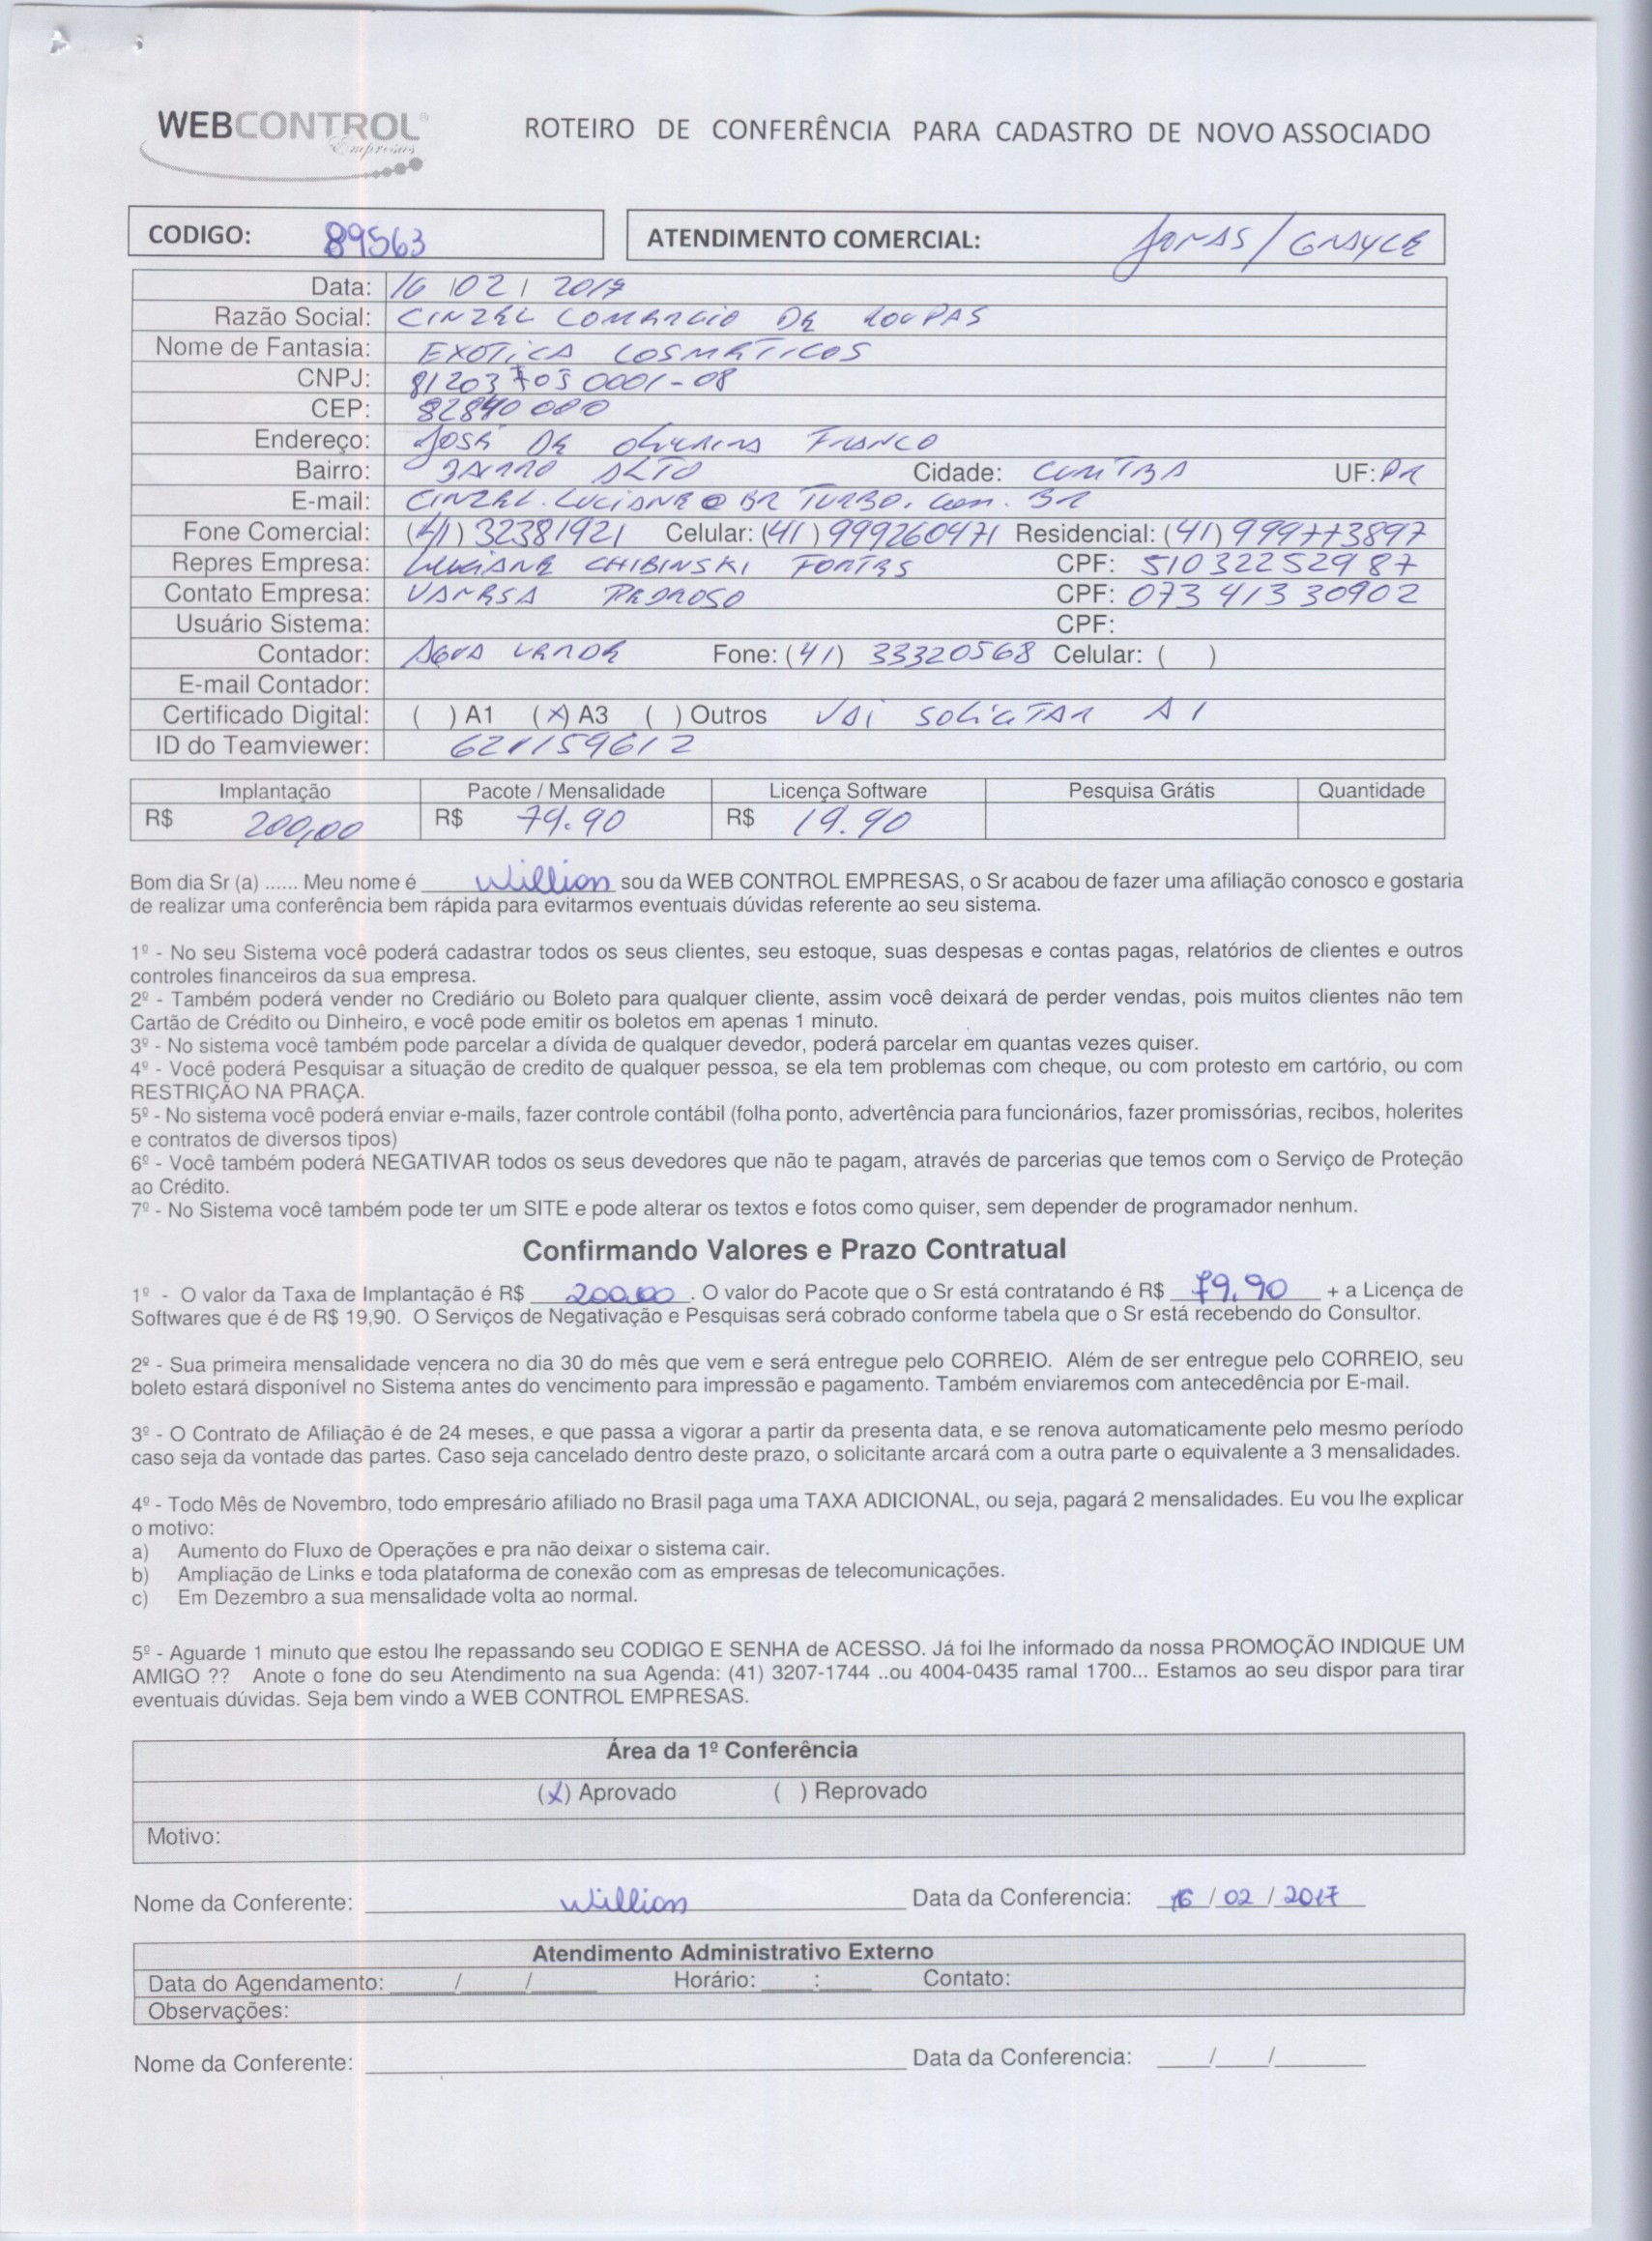 WEBCONTROL®
Empresas
ROTEIRO DE CONFERÊNCIA PARA CADASTRO DE NOVO ASSOCIADO
CODIGO: 89563 ATENDIMENTO COMERCIAL: JONAS / GRAYCE
Data: 16 / 02 / 2017
Razão Social: CINZEL COMERCIO DE ROUPAS
Nome de Fantasia: EXOTICA COSMÉTICOS
CNPJ: 81203705 0001-08
CEP: 82840 000
Endereço: JOSÉ DE OLIVEIRA FRANCO
Bairro: BAIRRO ALTO Cidade: CURITIBA UF: PR
E-mail: CINZEL.LUCIANE@BRTURBO.COM.BR
Fone Comercial: (41) 32381921 Celular: (41) 999260471 Residencial: (41) 999773897
Repres Empresa: LUCIANE CHIBINSKI FONTES CPF: 51032252987
Contato Empresa: VANESSA PEDROSO CPF: 073 413 30902
Usuário Sistema: CPF:
Contador: AGUA VERDE Fone: (41) 33320568 Celular: ( )
E-mail Contador:
Certificado Digital: ( ) A1 (X) A3 ( ) Outros VAI SOLICITAR A1
ID do Teamviewer: 621159612
Implantação Pacote / Mensalidade Licença Software Pesquisa Grátis Quantidade
R$ 200,00 R$ 79.90 R$ 19.90
Bom dia Sr (a) ...... Meu nome é Willian sou da WEB CONTROL EMPRESAS, o Sr acabou de fazer uma afiliação conosco e gostaria
de realizar uma conferência bem rápida para evitarmos eventuais dúvidas referente ao seu sistema.
1º - No seu Sistema você poderá cadastrar todos os seus clientes, seu estoque, suas despesas e contas pagas, relatórios de clientes e outros
controles financeiros da sua empresa.
2º - Também poderá vender no Crediário ou Boleto para qualquer cliente, assim você deixará de perder vendas, pois muitos clientes não tem
Cartão de Crédito ou Dinheiro, e você pode emitir os boletos em apenas 1 minuto.
3º - No sistema você também pode parcelar a dívida de qualquer devedor, poderá parcelar em quantas vezes quiser.
4º - Você poderá Pesquisar a situação de credito de qualquer pessoa, se ela tem problemas com cheque, ou com protesto em cartório, ou com
RESTRIÇÃO NA PRAÇA.
5º - No sistema você poderá enviar e-mails, fazer controle contábil (folha ponto, advertência para funcionários, fazer promissórias, recibos, holerites
e contratos de diversos tipos)
6º - Você também poderá NEGATIVAR todos os seus devedores que não te pagam, através de parcerias que temos com o Serviço de Proteção
ao Crédito.
7º - No Sistema você também pode ter um SITE e pode alterar os textos e fotos como quiser, sem depender de programador nenhum.
Confirmando Valores e Prazo Contratual
1º - O valor da Taxa de Implantação é R$ 200,00. O valor do Pacote que o Sr está contratando é R$ 79,90 + a Licença de
Softwares que é de R$ 19,90. O Serviços de Negativação e Pesquisas será cobrado conforme tabela que o Sr está recebendo do Consultor.
2º - Sua primeira mensalidade vencera no dia 30 do mês que vem e será entregue pelo CORREIO. Além de ser entregue pelo CORREIO, seu
boleto estará disponível no Sistema antes do vencimento para impressão e pagamento. Também enviaremos com antecedência por E-mail.
3º - O Contrato de Afiliação é de 24 meses, e que passa a vigorar a partir da presenta data, e se renova automaticamente pelo mesmo período
caso seja da vontade das partes. Caso seja cancelado dentro deste prazo, o solicitante arcará com a outra parte o equivalente a 3 mensalidades.
4º - Todo Mês de Novembro, todo empresário afiliado no Brasil paga uma TAXA ADICIONAL, ou seja, pagará 2 mensalidades. Eu vou lhe explicar
o motivo:
a) Aumento do Fluxo de Operações e pra não deixar o sistema cair.
b) Ampliação de Links e toda plataforma de conexão com as empresas de telecomunicações.
c) Em Dezembro a sua mensalidade volta ao normal.
5º - Aguarde 1 minuto que estou lhe repassando seu CODIGO E SENHA de ACESSO. Já foi lhe informado da nossa PROMOÇÃO INDIQUE UM
AMIGO ?? Anote o fone do seu Atendimento na sua Agenda: (41) 3207-1744 ..ou 4004-0435 ramal 1700... Estamos ao seu dispor para tirar
eventuais dúvidas. Seja bem vindo a WEB CONTROL EMPRESAS.
Área da 1º Conferência
(X) Aprovado ( ) Reprovado
Motivo:
Nome da Conferente: Willian Data da Conferencia: 16 / 02 / 2017
Atendimento Administrativo Externo
Data do Agendamento: ____/____/____ Horário: ____:____ Contato:
Observações:
Nome da Conferente: ____ Data da Conferencia: ____/____/____